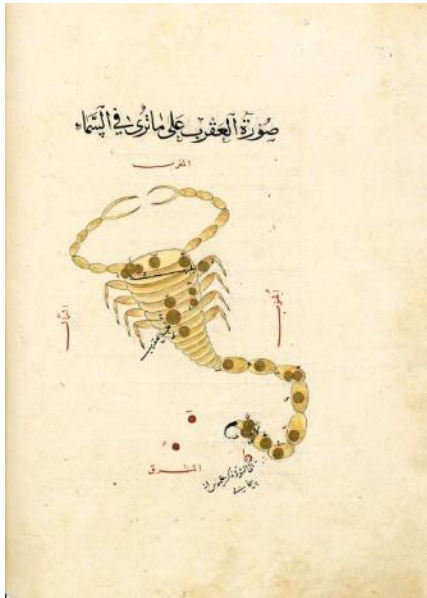 صورة العقرب على ما ترى في السماء
المغرب
الجنوب
الشمال
قلب العقرب
المشرق